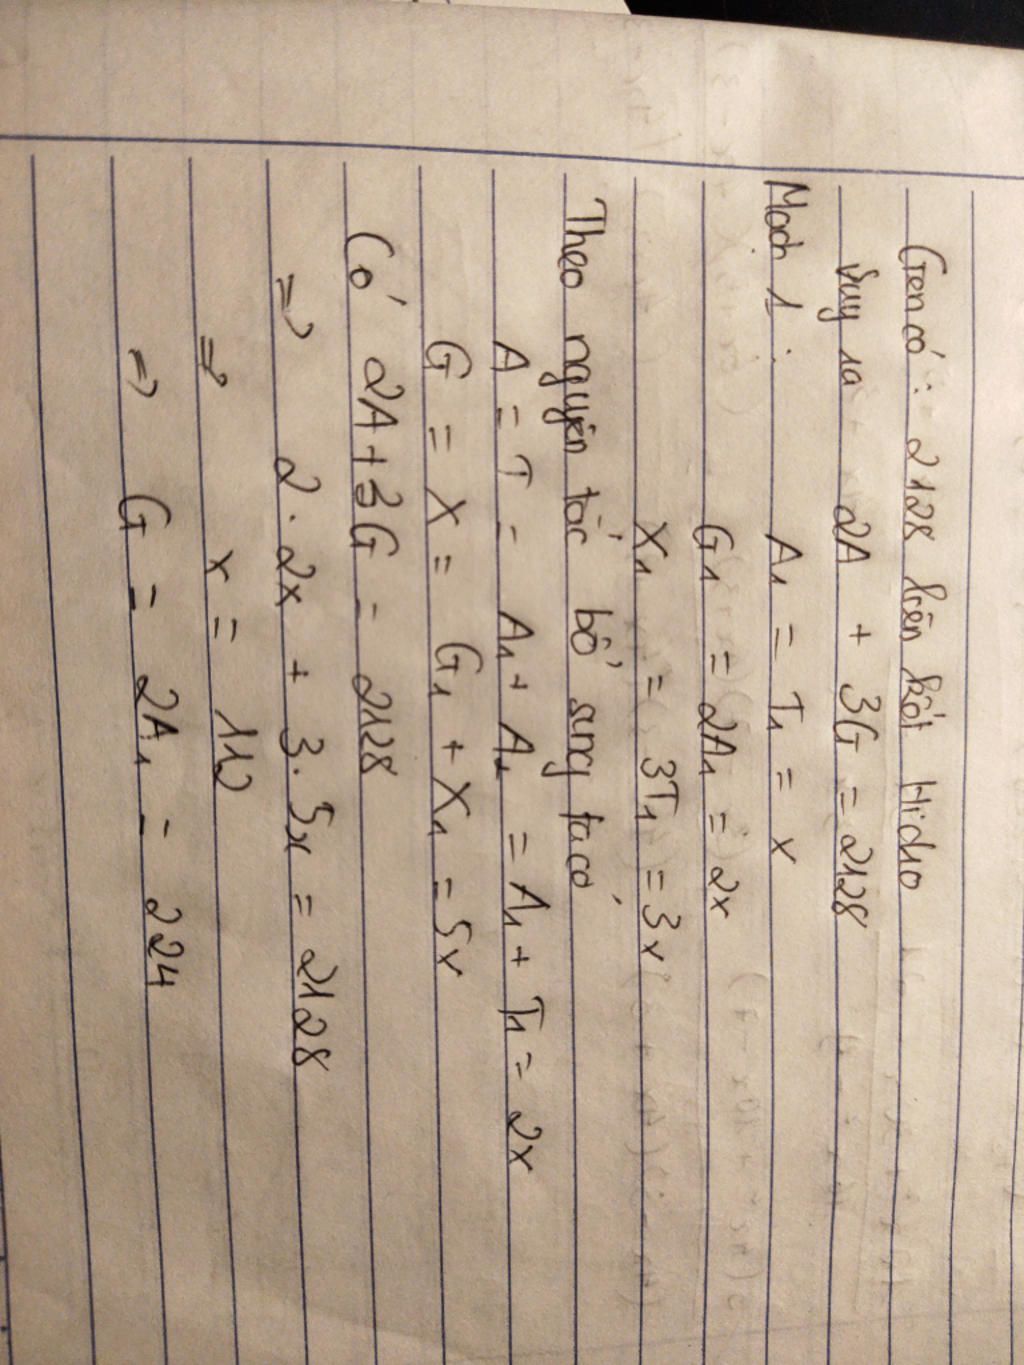 Gen có : 2128 liên kết Hidro
Suy ra 2A + 3G = 2128
Mạch 1 : A₁ = T₁ = x
G₁ = 2A₁ = 2x
X₁ = 3T₁ = 3x
Theo nguyên tắc bổ sung ta có
A = T = A₁ + A₂ = A₁ + T₁ = 2x
G = X = G₁ + X₁ = 5x
Có 2A + 3G = 2128
=> 2 . 2x + 3 . 5x = 2128
=> x = 112
=> G = 2A₁ = 224